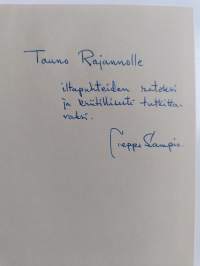 Tauno Rajannolle
iltapuhteiden ratoksi
ja kriitillisesti tutkitta-
vaksi.
Seppo Lampio